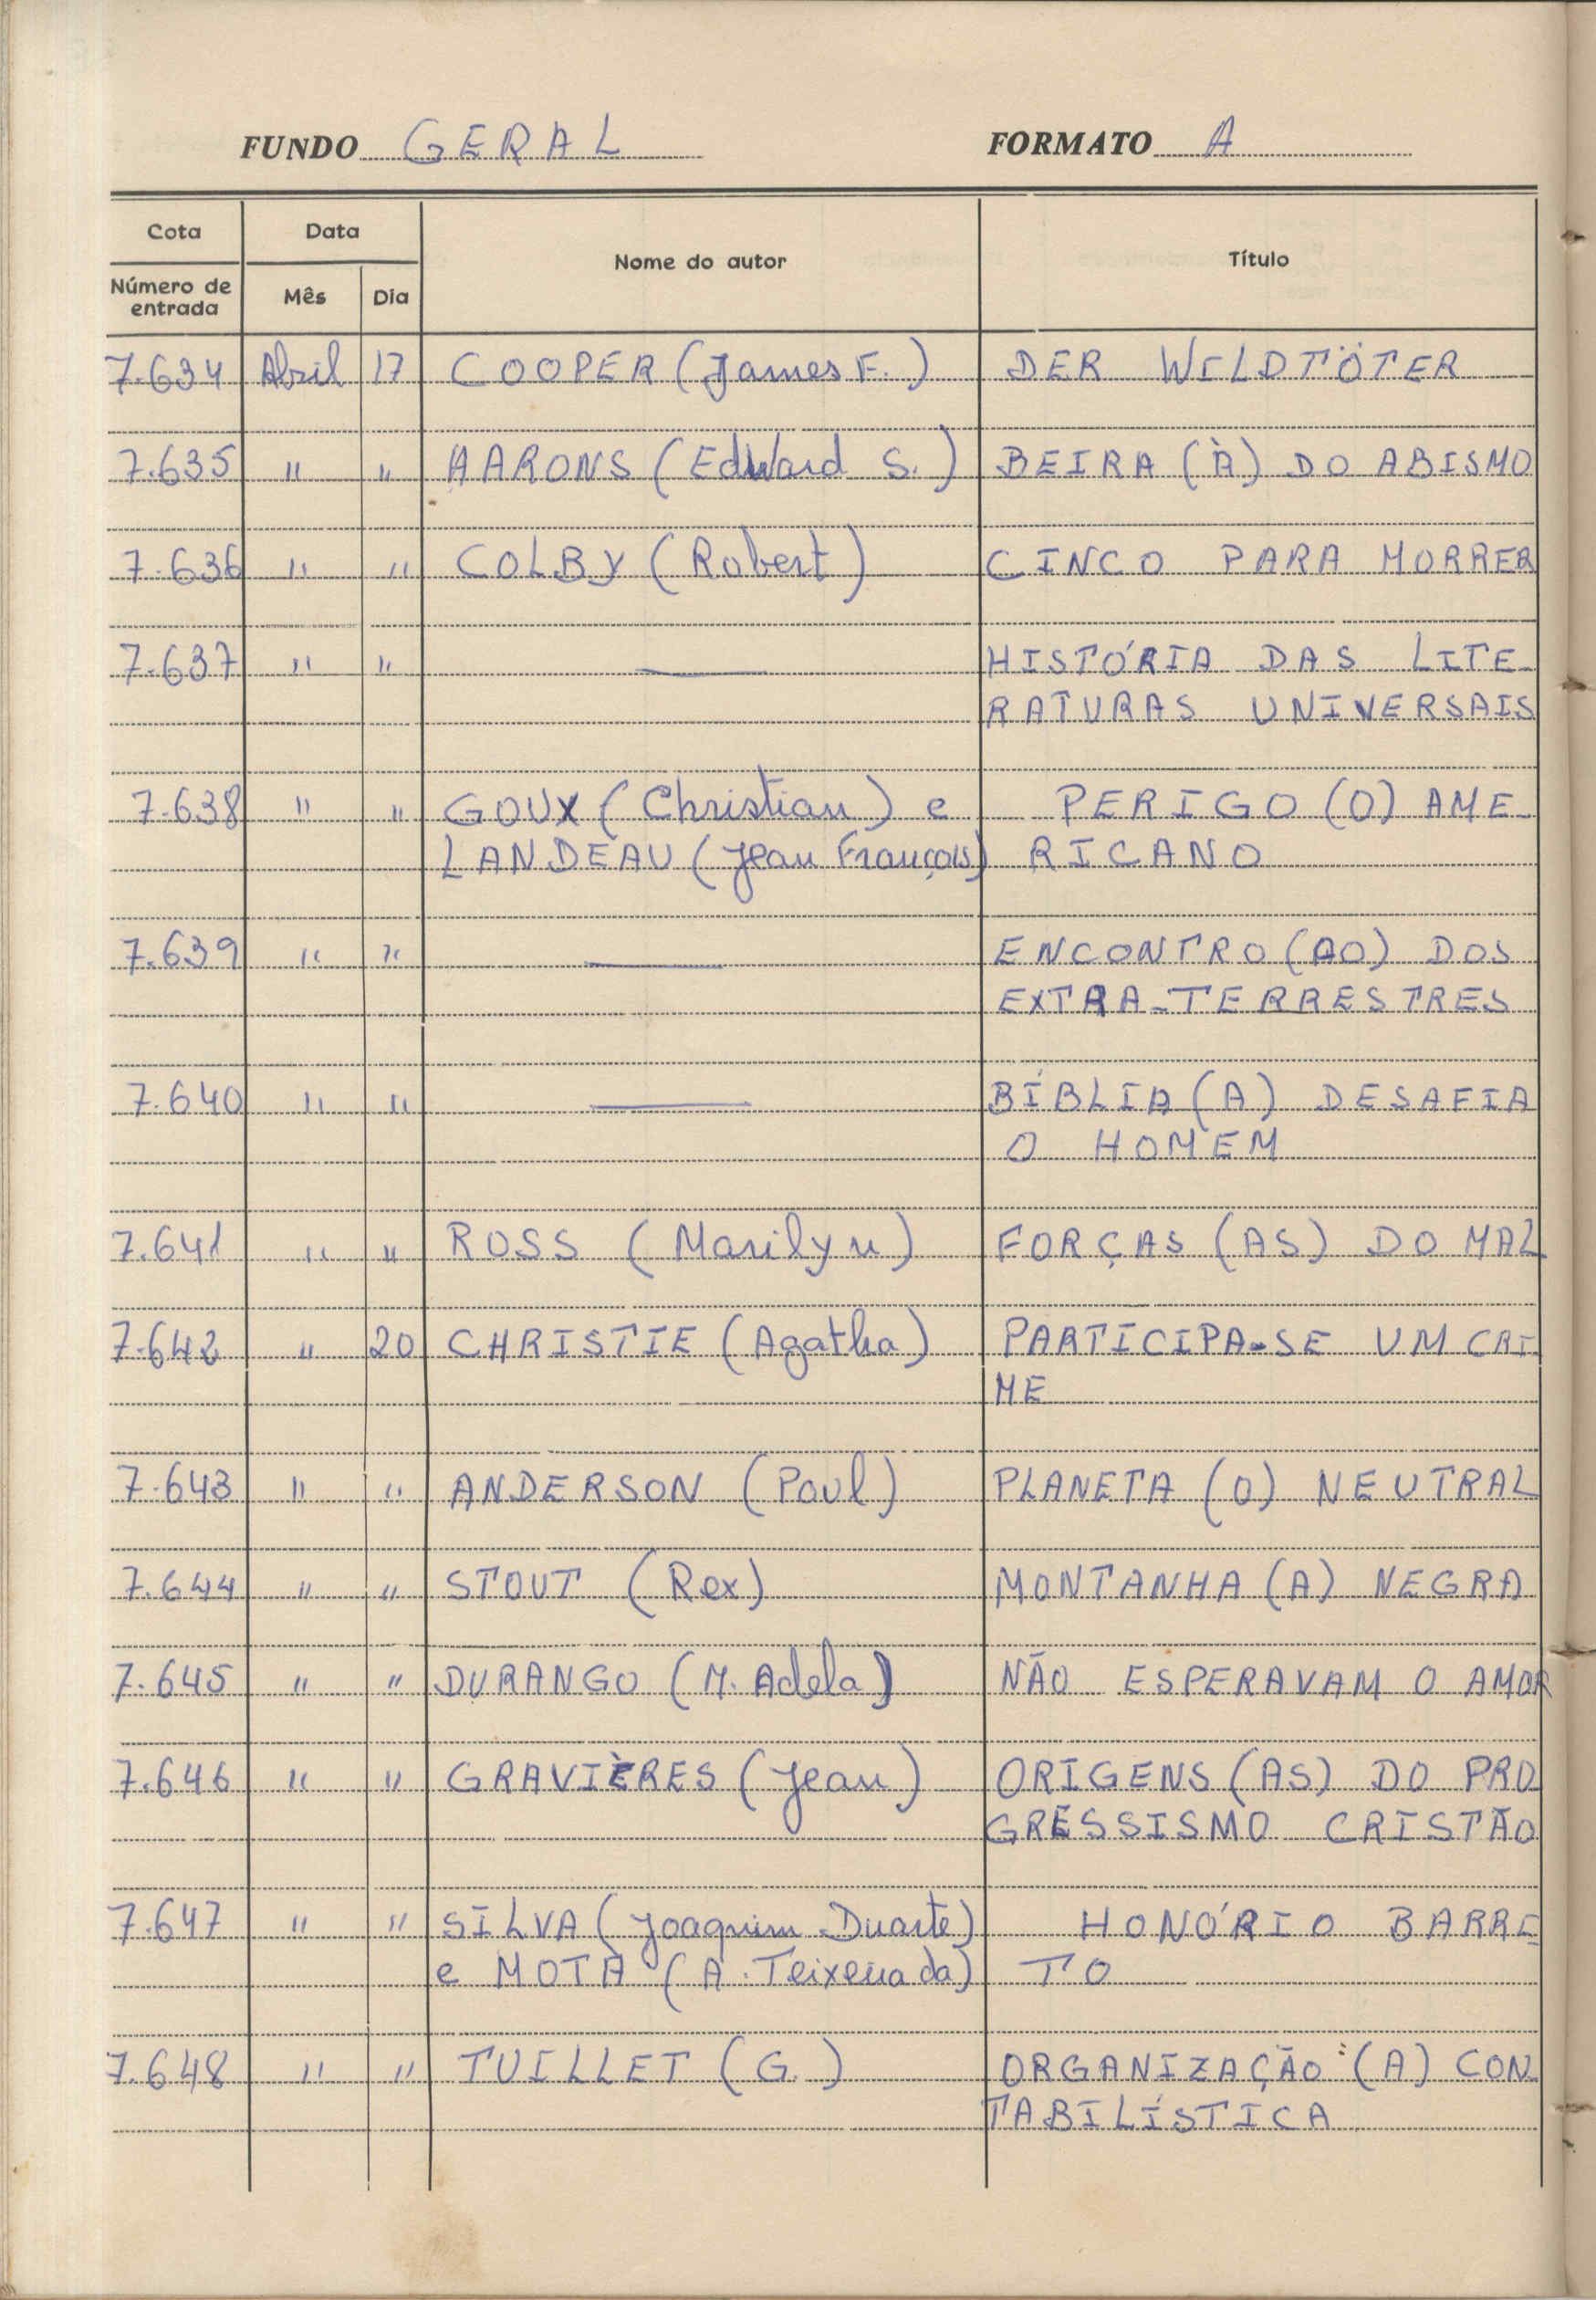 FUNDO GERAL FORMATO A
Cota Data Nome do autor Título
Número de entrada Mês Dia
7.634 Abril 17 COOPER (James F.) DER WILDTÖTER
7.635 " " AARONS (Edward S.) BEIRA (À) DO ABISMO
7.636 " " COLBY (Robert) CINCO PARA MORRER
7.637 " " — HISTÓRIA DAS LITE-
RATURAS UNIVERSAIS
7.638 " " GOUX (Christian) e PERIGO (O) AME-
LANDEAU (Jean François) RICANO
7.639 " " — ENCONTRO (AO) DOS
EXTRA-TERRESTRES
7.640 " " — BÍBLIA (A) DESAFIA
O HOMEM
7.641 " " ROSS (Marilyn) FORÇAS (AS) DO MAL
7.642 " 20 CHRISTIE (Agatha) PARTICIPA-SE UM CRI-
ME
7.643 " " ANDERSON (Poul) PLANETA (O) NEUTRAL
7.644 " " STOUT (Rex) MONTANHA (A) NEGRA
7.645 " " DURANGO (M. Adela) NÃO ESPERAVAM O AMOR
7.646 " " GRAVIÈRES (Jean) ORIGENS (AS) DO PRO
GRESSISMO CRISTÃO
7.647 " " SILVA (Joaquim Duarte) HONÓRIO BARRE
e MOTA (A. Teixeira da) TO
7.648 " " TUILLET (G.) ORGANIZAÇÃO (A) CON-
TABILÍSTICA